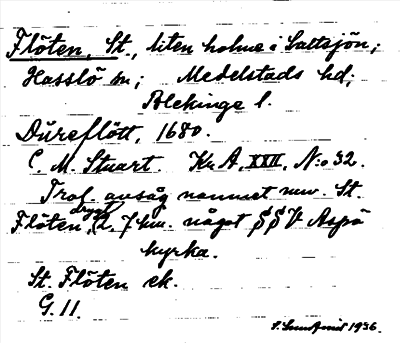 Flöten, St., liten holme i Saltsjön;
Hasslö sn; Medelstads hd;
Blekinge l.
Düreflött, 1680.
C. M. Stuart. Kr. A, XXII, N:o 32.
Trol. avsåg namnet nuv. St.
Flöten, drygt 2, 7 km. något SSV Aspö
kyrka.
St. Flöten ek.
G. 11.
1936.